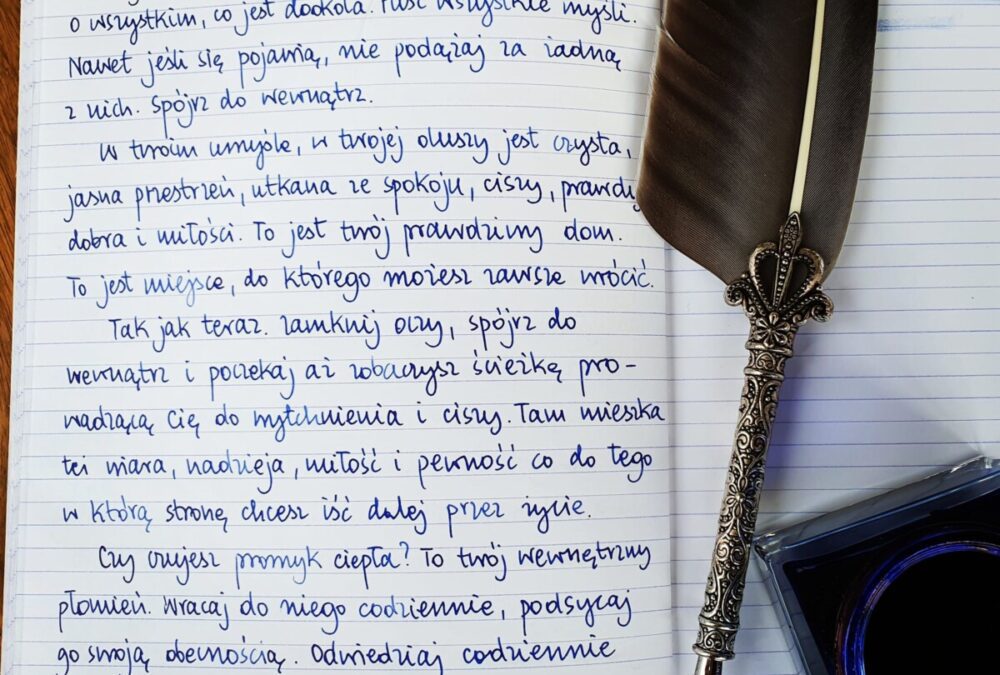 o wszystkim, co jest dookoła. Puść wszystkie myśli.
Nawet jeśli się pojawią, nie podążaj za żadną
z nich. Spójrz do wewnątrz.
W twoim umyśle, w twojej duszy jest czysta,
jasna przestrzeń, utkana ze spokoju, ciszy, prawdy
dobra i miłości. To jest twój prawdziwy dom.
To jest miejsce, do którego możesz zawsze wrócić.
Tak jak teraz. Zamknij oczy, spójrz do
wewnątrz i poczekaj aż zobaczysz ścieżkę pro-
wadzącą Cię do wytchnienia i ciszy. Tam mieszka
też wiara, nadzieja, miłość i pewność co do tego
w którą stronę chcesz iść dalej przez życie.
Czy czujesz promyk ciepła? To twój wewnętrzny
płomień. Wracaj do niego codziennie, podsycaj
go swoją obecnością. Odwiedzaj codziennie